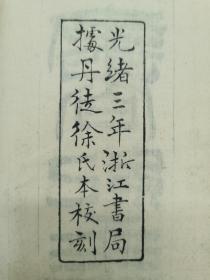 光緒三年浙江書局
據丹徒徐氏本校刻